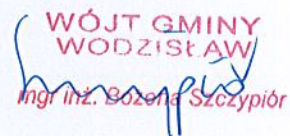 WÓJT GMINY
WODZISŁAW
mgr inż. Bożena Szczypiór